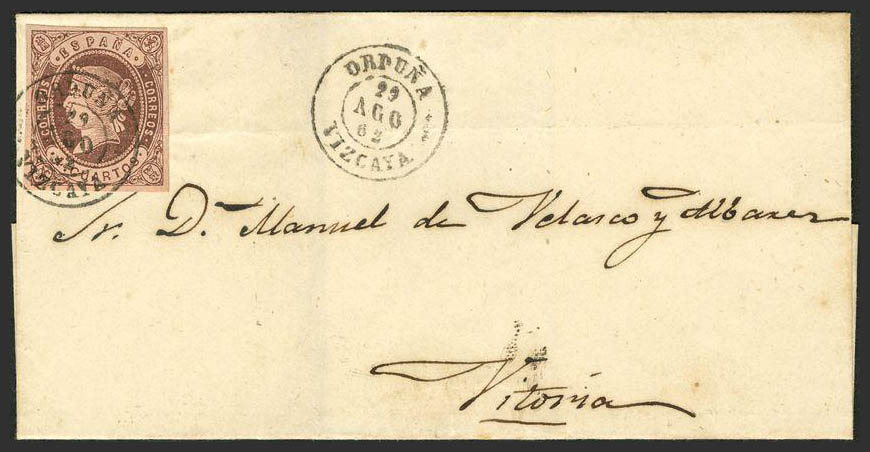 ESPAÑA
CORREOS
CORREOS
CUARTOS
ORDUÑA
29
AGO
62
VIZCAYA
ORDUÑA
29
AGO
62
VIZCAYA
Sr. D. Manuel de Velasco y
Vitoria